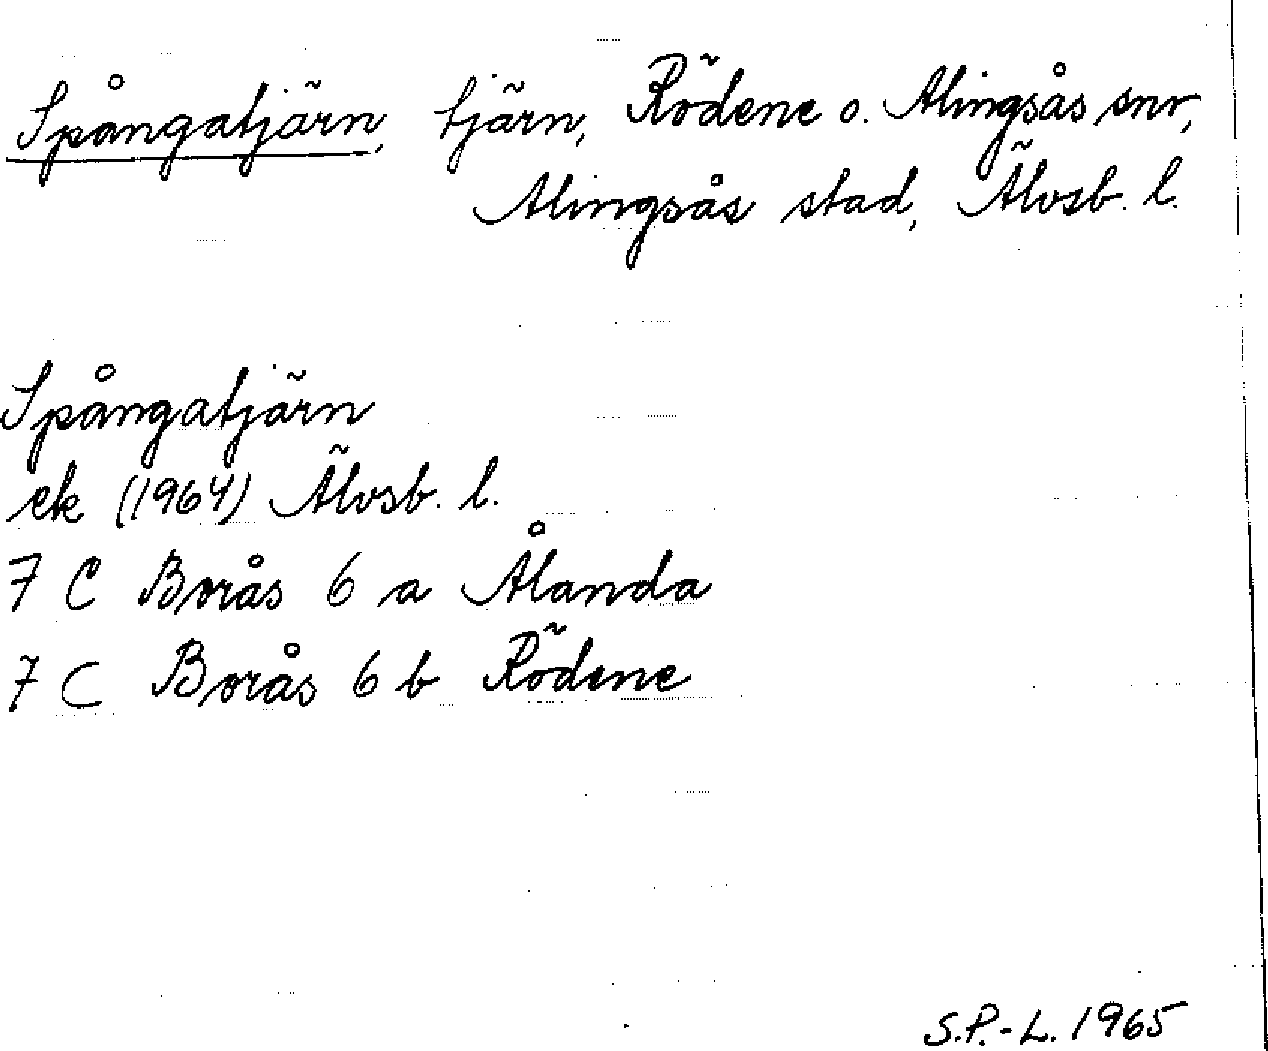 Spångatjärn, tjärn, Rödene o. Alingsås snr,
Alingsås stad, Älvsb. l.
Spångatjärn
ek (1964) Älvsb. l.
7 C Borås 6 a Ålanda
7 C Borås 6 b Rödene
S.P.-L. 1965